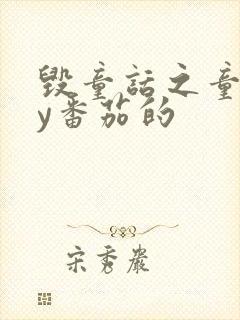 毁童话之童
y番茄的
宋秀岩